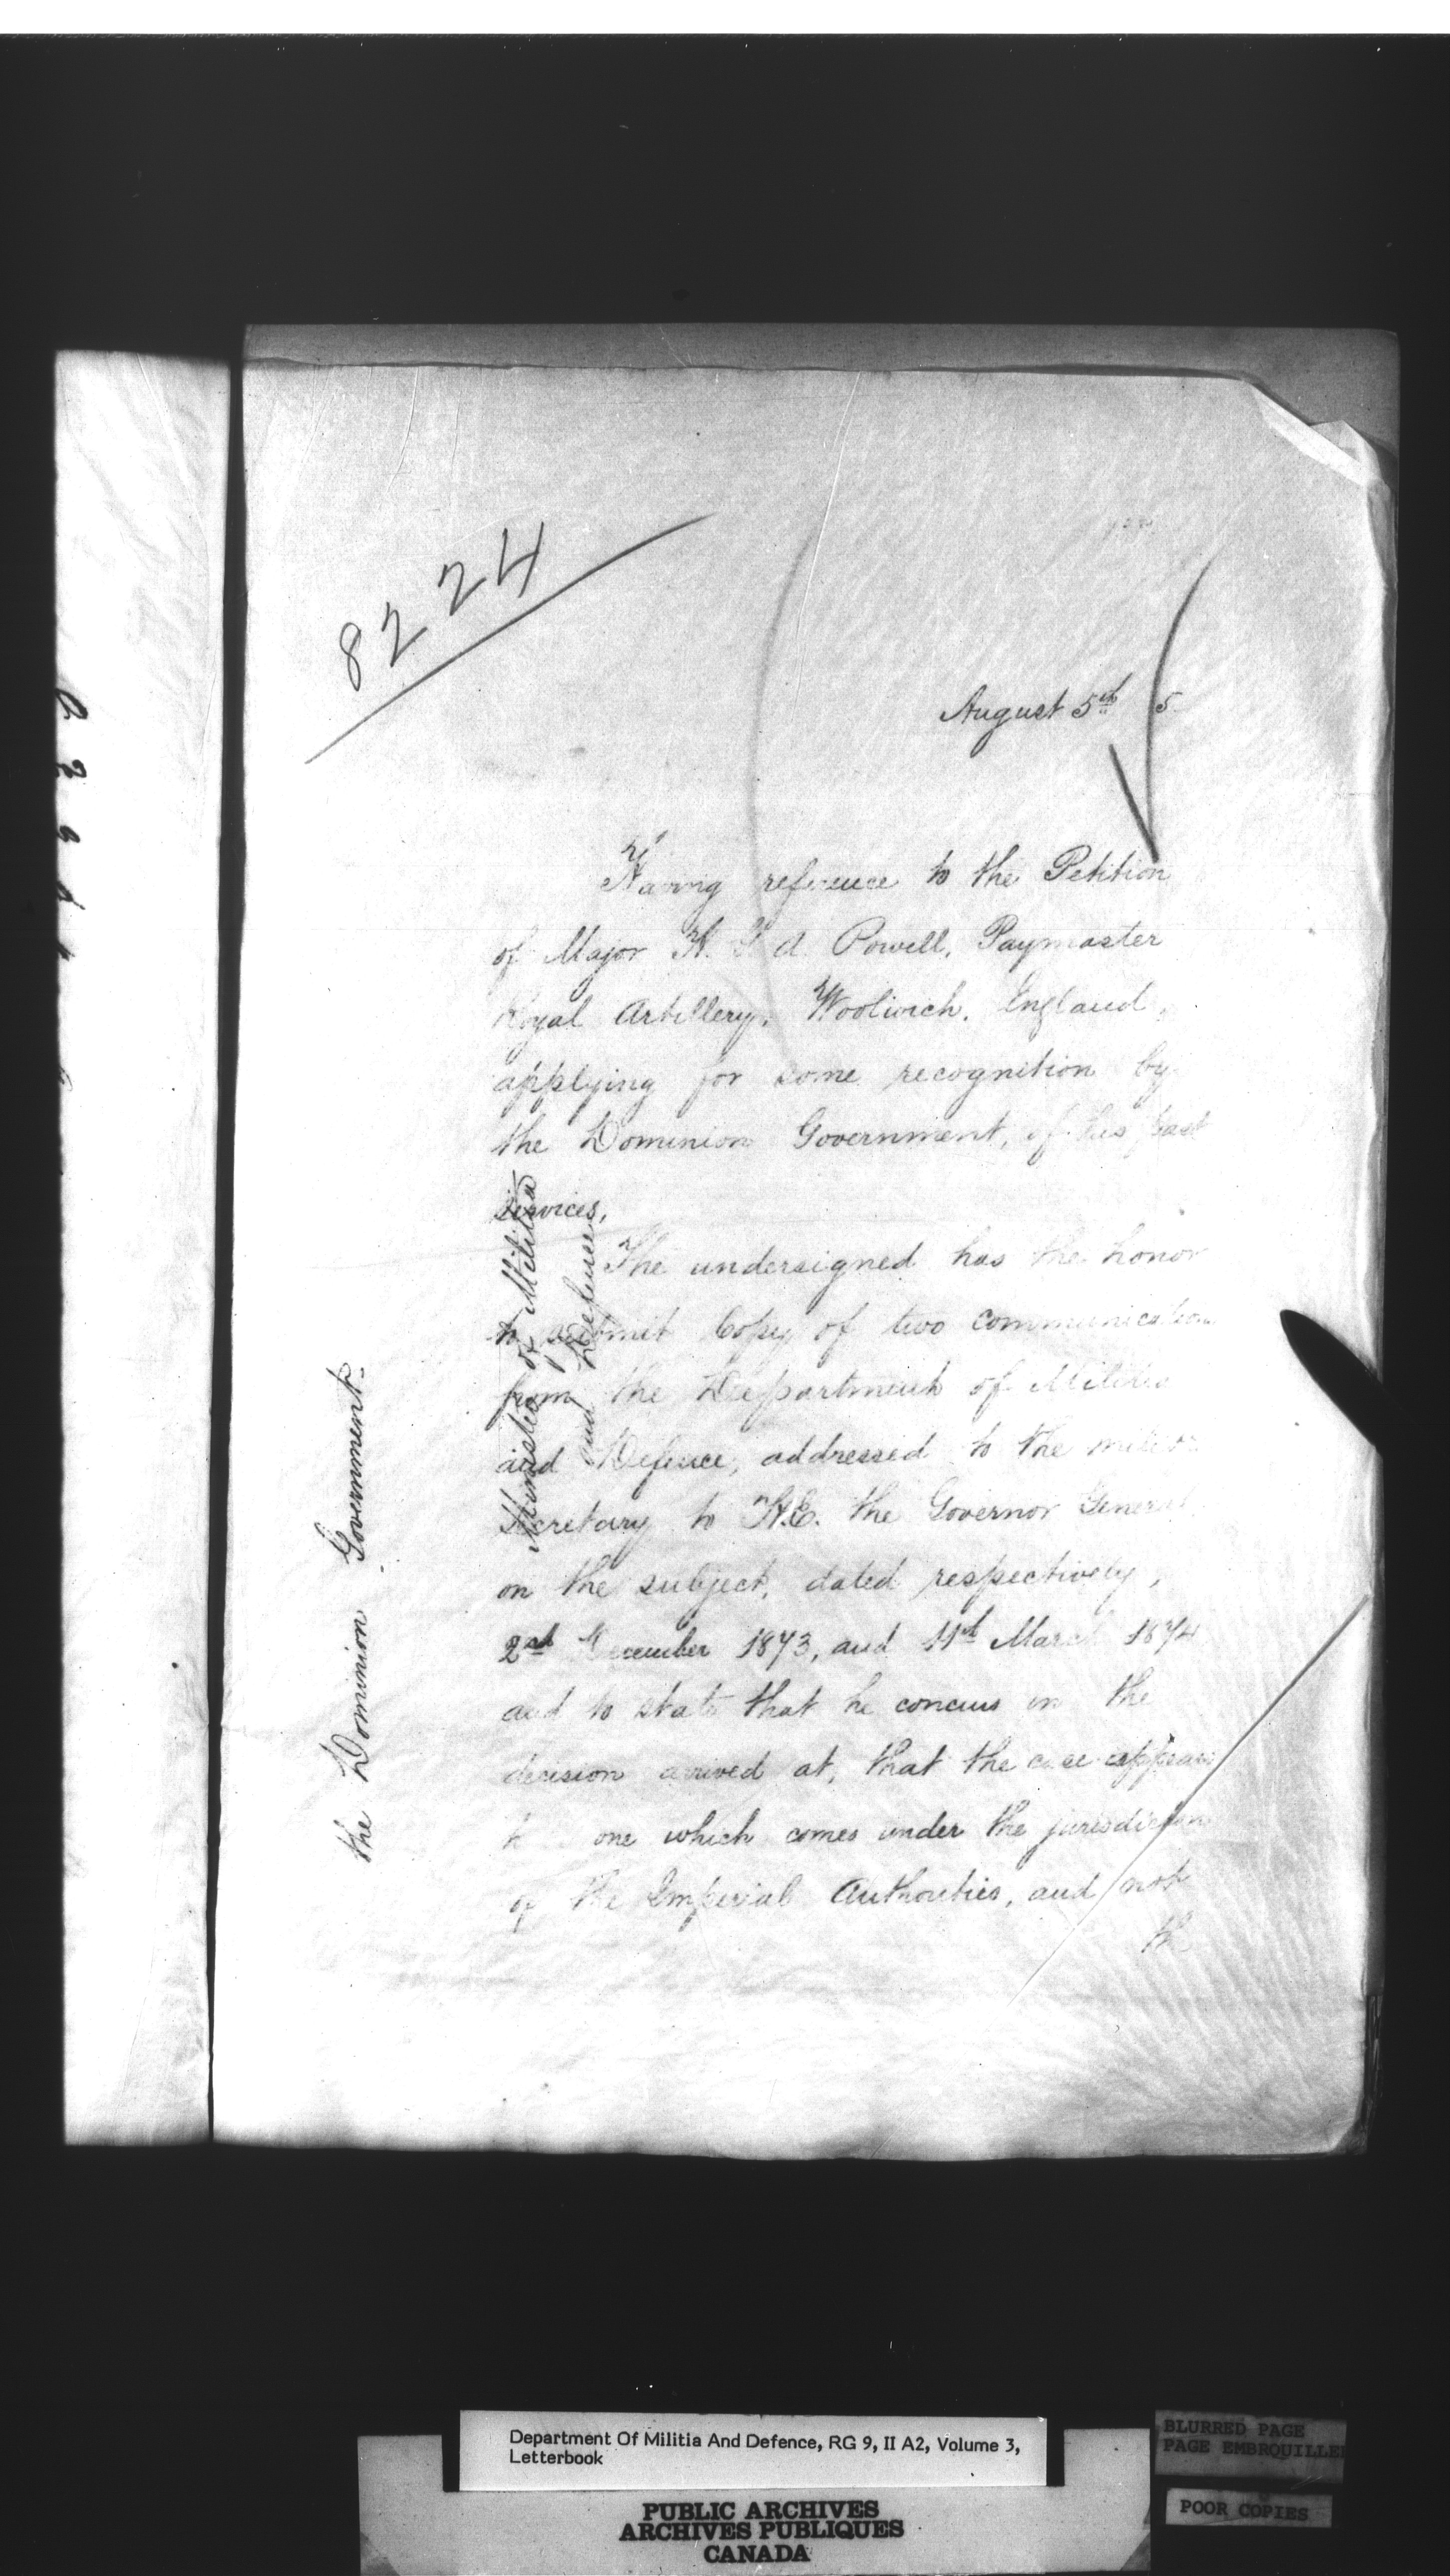 8224
August 5th 5
Having reference to the Petition
of Major H. d Powell, Paymaster
Royal Artillery, Woolwich, England,
applying for some recognition by
the Dominion Government, of his past
services,
The undersigned has the honor
to submit Copy of two communication
from the Department of Militia
and Defence, addressed to the
Secretary to H.E. the Governor General
on the subject, dated respectively,
2nd December 1873, and 11th March 1874
and to state that he concurs in the
decision arrived at, that the case appears
one which comes under the jurisdiction
of the Imperial Authorities, and not
the Dominion Government.
Minister of Militia
and Defense
Department Of Militia And Defence, RG 9, II A2, Volume 3,
Letterbook
PUBLIC ARCHIVES
ARCHIVES PUBLIQUES
CANADA
BLURRED PAGE
PAGE EMBROUILLEE
POOR COPIES